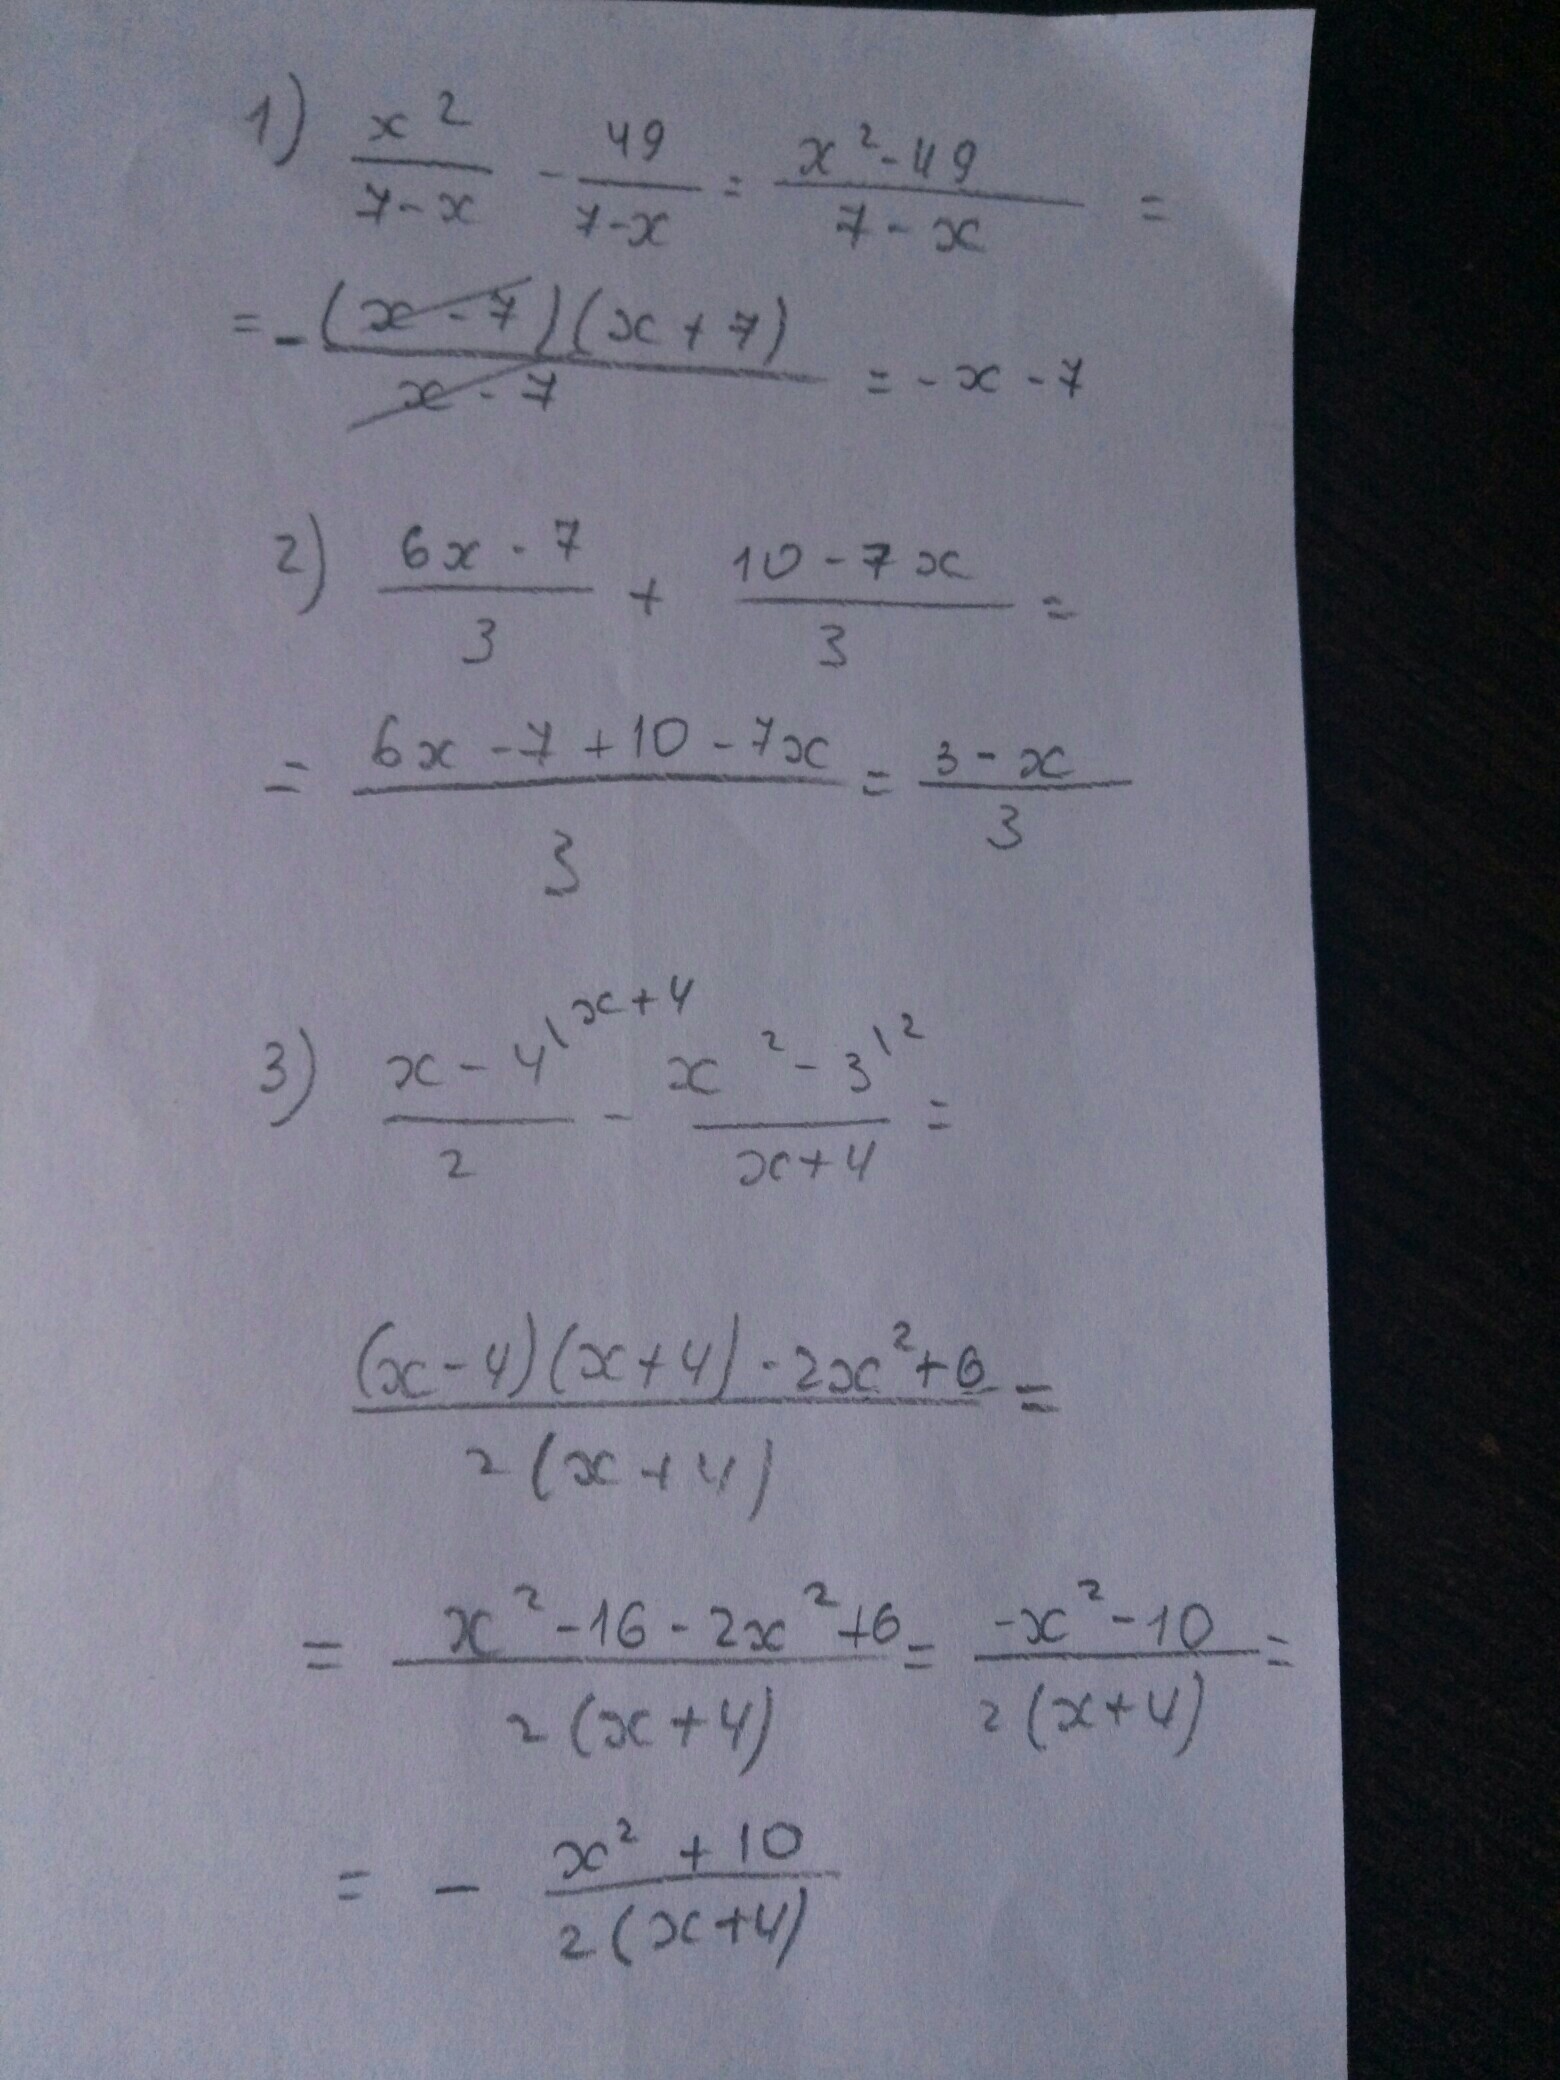 1) x²/(7-x) - 49/(7-x) = (x²-49)/(7-x) =
= -(x-7)(x+7)/(x-7) = -x-7
2) (6x-7)/3 + (10-7x)/3 =
= (6x-7+10-7x)/3 = (3-x)/3
3) (x-4)\ˣ⁺⁴/2 - (x²-3)\²/(x+4) =
((x-4)(x+4)-2x²+6)/(2(x+4)) =
= (x²-16-2x²+6)/(2(x+4)) = (-x²-10)/(2(x+4)) =
= - (x²+10)/(2(x+4))